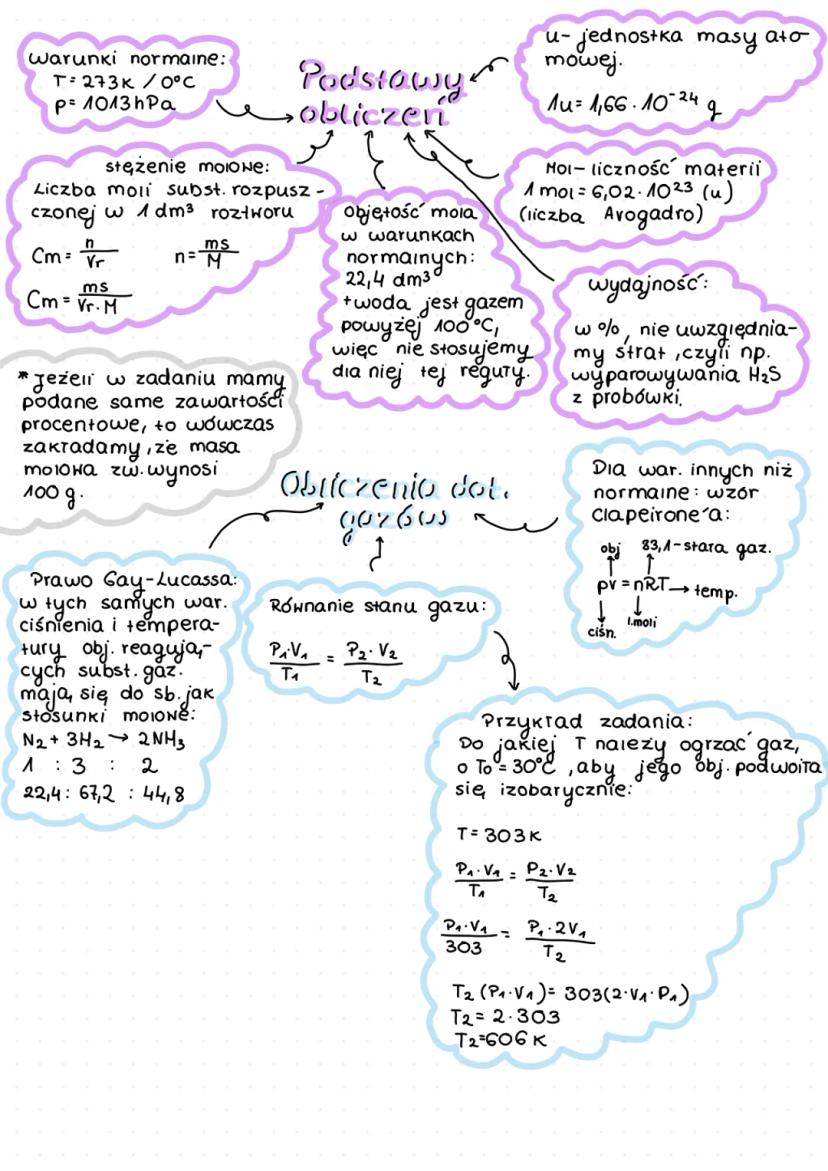 warunki normalne:
T = 273K / 0°C
p = 1013 hPa
Podstawy
obliczeń
u- jednostka masy ato-
mowej.
1u = 1,66 · 10⁻²⁴ g
stężenie molowe:
Liczba moli subst. rozpusz-
czonej w 1 dm³ roztworu
Cm = n/Vr n = ms/M
Cm = ms/Vr·M
Objętość mola
w warunkach
normalnych:
22,4 dm³
+woda jest gazem
powyżej 100°C,
więc nie stosujemy
dla niej tej reguły.
Mol- liczność materii
1 mol = 6,02 · 10²³ (u)
(liczba Avogadro)
wydajność:
w %, nie uwzględnia-
my strat, czyli np.
wyparowywania H₂S
z probówki.
* Jeżeli w zadaniu mamy
podane same zawartości
procentowe, to wówczas
zakładamy, że masa
molowa zw. wynosi
100 g.
Obliczenia dot.
gazów
Dla war. innych niż
normalne: wzór
Clapeirone'a:
obj 83,1-stara gaz.
pv = nRT → temp.
ciśn. l.moli
Prawo Gay-Lucassa:
w tych samych war.
ciśnienia i tempera-
tury obj. reagują-
cych subst. gaz.
mają się do sb. jak
stosunki molowe:
N₂ + 3H₂ → 2NH₃
1 : 3 : 2
22,4 : 67,2 : 44,8
Równanie stanu gazu:
P₁·V₁/T₁ = P₂·V₂/T₂
Przykład zadania:
Do jakiej T należy ogrzać gaz,
o T₀ = 30°C, aby jego obj. podwoiła
się izobarycznie:
T = 303 K
P₁·V₁/T₁ = P₂·V₂/T₂
P₁·V₁/303 = P₁·2V₁/T₂
T₂ (P₁·V₁) = 303(2·V₁·P₁)
T₂ = 2·303
T₂=606 K